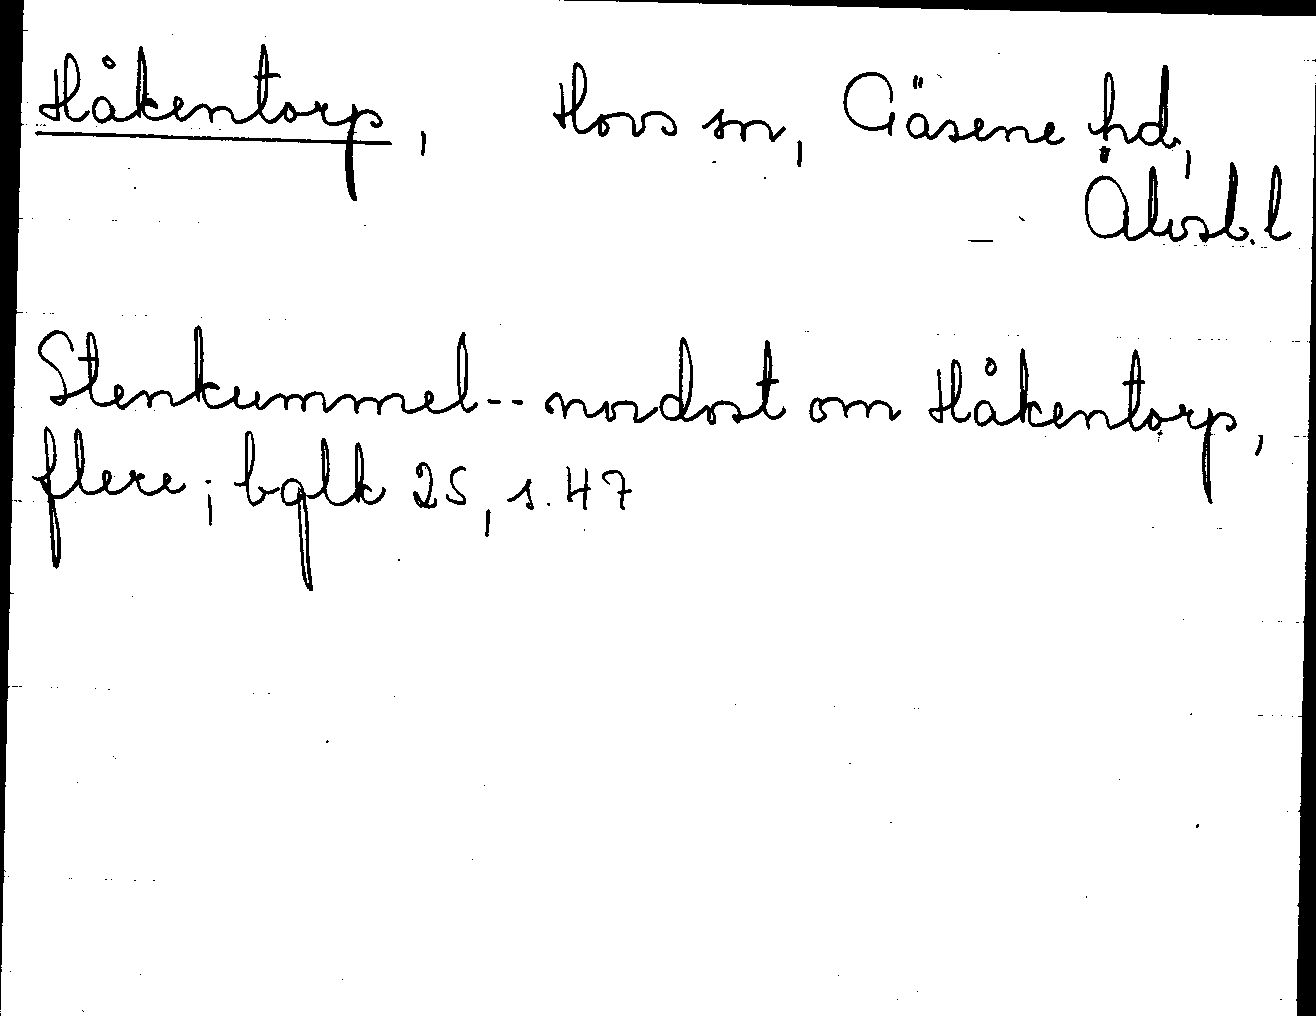 Håkentorp, Hovs sn, Gäsene hd,
Älvsb. l
Stenkummel -- nordost om Håkentorp,
flere; bglk 25, s. 47